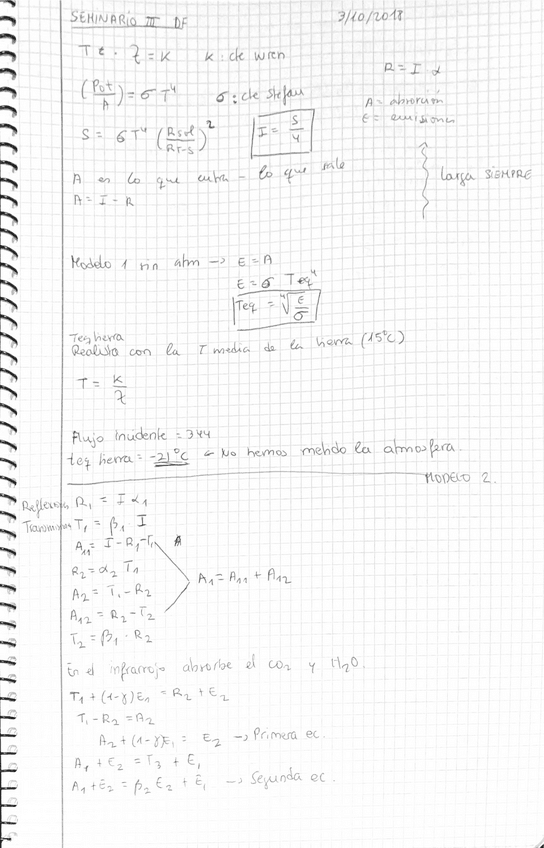 SEMINARIO III DF 3/10/2018
T e · λ = K K: cte wien
R = I α
(Pot/A) = σ T⁴ σ: cte stefan
A = absorción
E = emisiones
S = σ T⁴ (Rsol/RT-S)² I = S/4
A es lo que entra - lo que sale
A = I - R
larga SIEMPRE
Modelo 1 sin atm → E = A
E = σ Teq⁴
Teq = ⁴√(E/σ)
Teq tierra
Realista con la T media de la tierra (15°C)
T = K/λ
Flujo incidente = 344
teq tierra = -21°C ← No hemos metido la atmosfera.
MODELO 2.
Reflexion R₁ = I α₁
T₁ = β₁ I
A₁₁ = I - R₁ - T₁
R₂ = α₂ T₁
A₁ = A₁₁ + A₁₂
A₂ = T₁ - R₂
A₁₂ = R₂ - T₂
T₂ = β₁ · R₂
En el infrarrojo absorbe el CO₂ y H₂O.
T₁ + (1-γ)E₁ = R₂ + E₂
T₁ - R₂ = A₂
A₂ + (1-γ)E₁ = E₂ → Primera ec.
A₁ + E₂ = T₃ + E₁
A₁ + E₂ = β₂ E₂ + E₁ → Segunda ec.